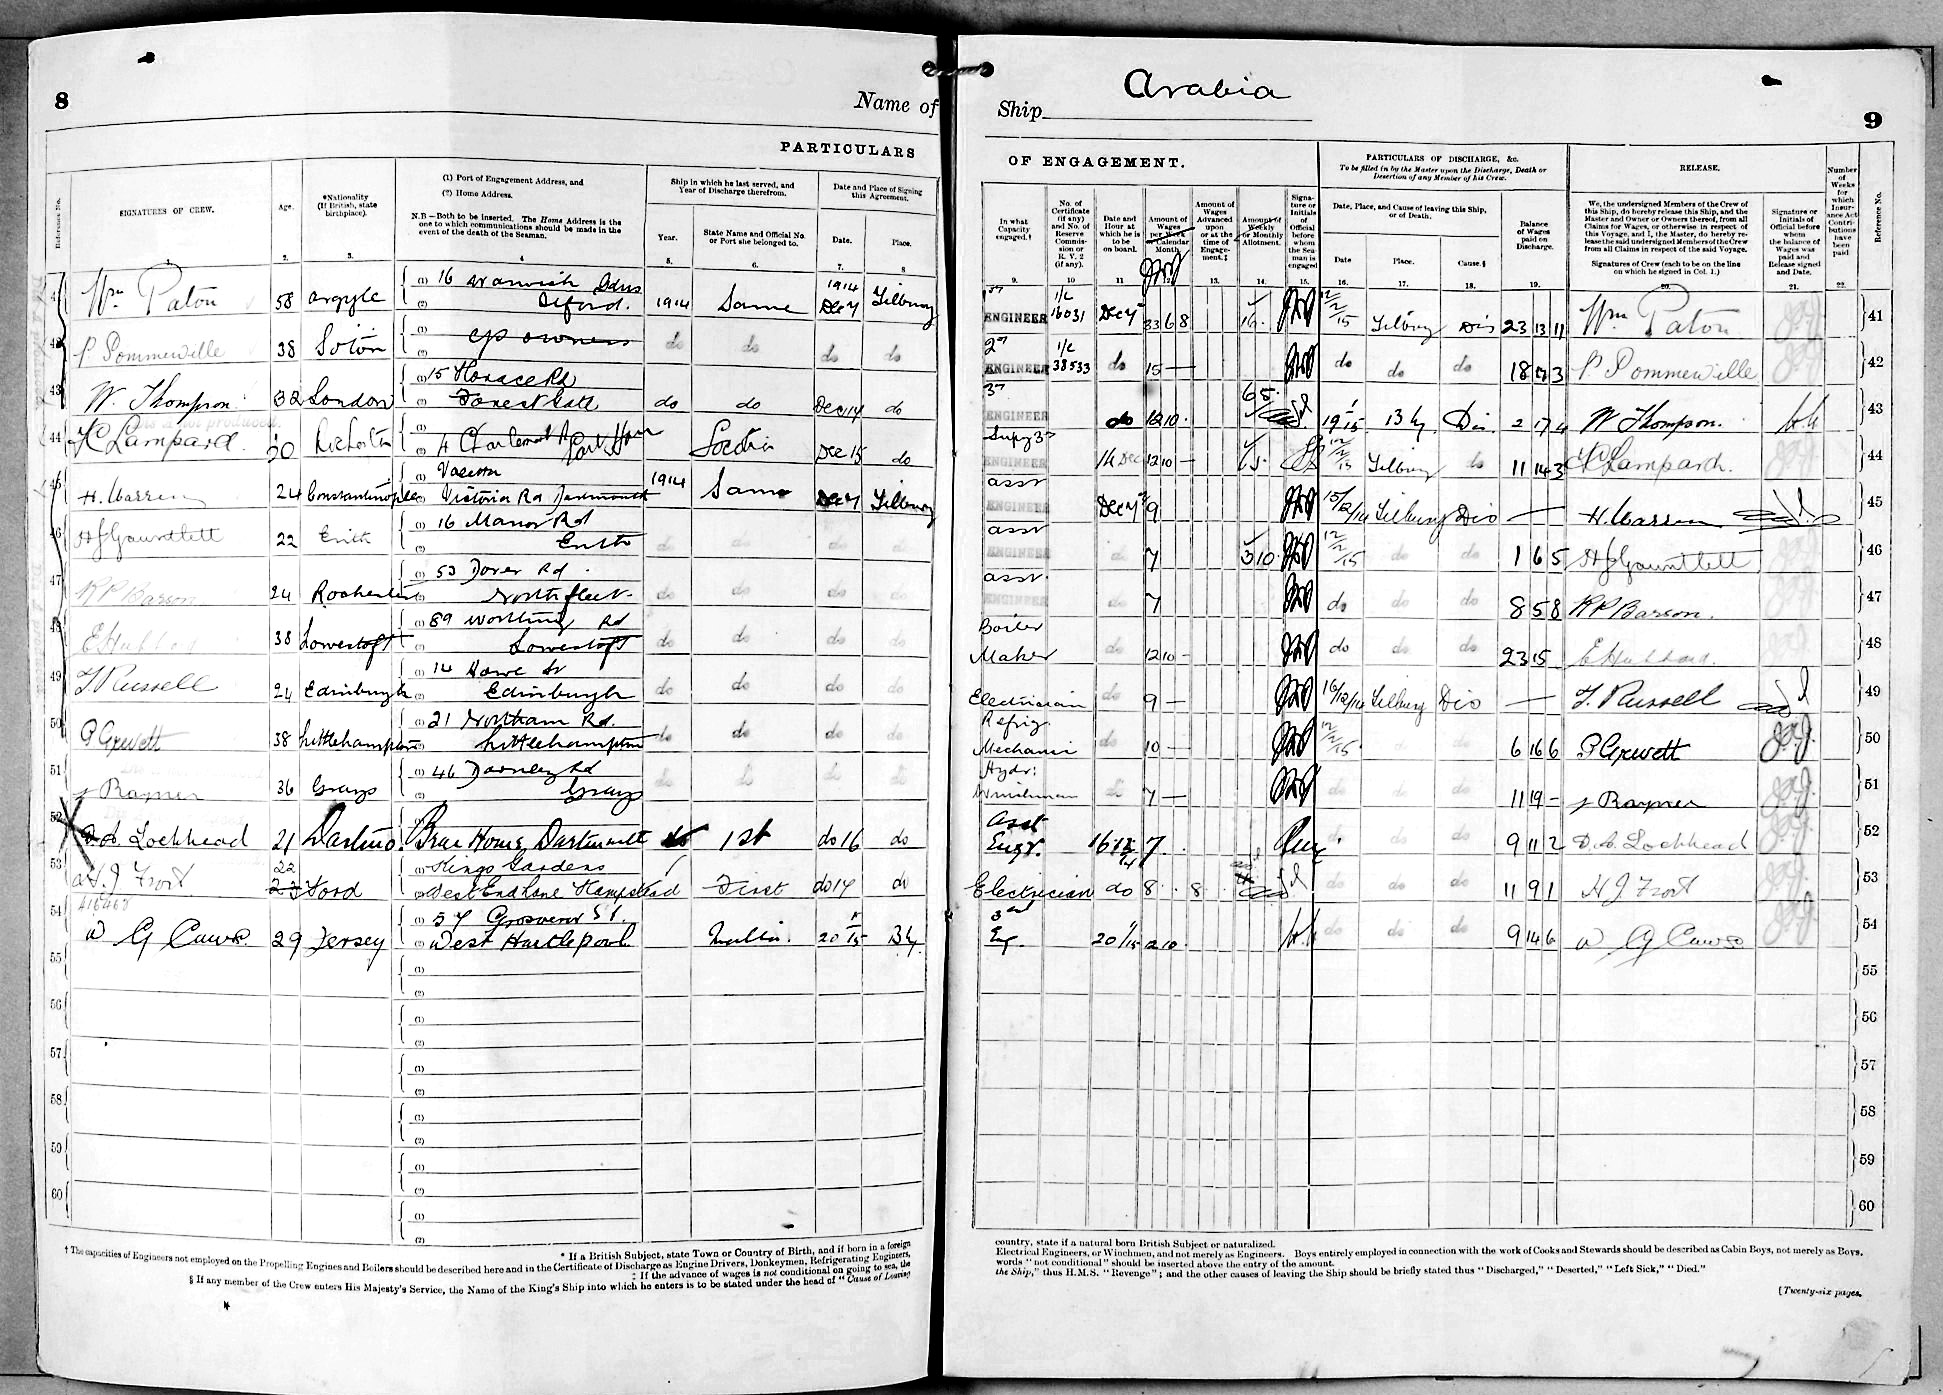 8
Name of
PARTICULARS
Reference No.
SIGNATURES OF CREW.
Age.
*Nationality (If British, state birthplace).
(1) Port of Engagement Address, and
(2) Home Address.
N.B.—Both to be inserted. The Home Address is the one to which communications should be made in the event of the death of the Seaman.
Ship in which he last served, and Year of Discharge therefrom.
Year.
State Name and Official No. or Port she belonged to.
Date and Place of Signing this Agreement.
Date.
Place.
1. 2. 3. 4 5. 6. 7. 8
Wm Paton 58 Argyle (1) 16 Warwick Gdns (2) Ilford. 1914 Same 1914 Dec 7 Tilbury
P Pommerville 38 Soton c/o owners do do do do
43 W. Thompson 32 London (1) 15 Horace Rd (2) Forest Gate do do Dec 14 do
44 Lampard 30 (2) 4 Dec 15 do
45 H. Warren 24 Constantinople (1) (2) Victoria Rd Dartmouth 1914 Same Dec 7 Tilbury
46 H J Gauntlett 22 Erith (1) 16 Manor Rd (2) Erith do do do do
47 R P Barson 24 Rochester (1) 53 Dover Rd (2) Northfleet do do do do
48 E Hubbard 38 Lowestoft (1) 89 Worthing Rd (2) Lowestoft do do do do
49 T. Russell 24 Edinburgh (1) 14 Howe St (2) Edinburgh do do do do
50 P Grevett 38 Littlehampton (1) 21 Northam Rd. (2) Littlehampton do do do do
51 J Rayner 36 Grays (1) 46 Darnley Rd (2) Grays do do do do
52 D. A. Lochhead 21 Brae House, Dartmouth do 1st do 16 do
53 H. J Frost 22 23 (1) Kings Gardens (2) West End Lane Hampstead First do 14 do
54 416468 W G Cawse. 29 Jersey (1) 57 Grosvenor St. (2) West Hartlepool 20 1/15 By.
55 (1) (2)
56 (1) (2)
57 (1) (2)
58 (1) (2)
59 (1) (2)
60 (1) (2)
* If a British Subject, state Town or Country of Birth, and if born in a foreign
† The capacities of Engineers not employed on the Propelling Engines and Boilers should be described here and in the Certificate of Discharge as Engine Drivers, Donkeymen, Refrigerating Engineers,
‡ If the advance of wages is not conditional on going to sea, the
§ If any member of the Crew enters His Majesty's Service, the Name of the King's Ship into which he enters is to be stated under the head of "Cause of Leaving
Ship Arabia
9
OF ENGAGEMENT.
PARTICULARS OF DISCHARGE, &c.
To be filled in by the Master upon the Discharge, Death or Desertion of any Member of his Crew.
RELEASE.
In what Capacity engaged.†
No. of Certificate (if any) and No. of Reserve Commission or R. V. 2 (if any).
Date and Hour at which he is to be on board.
Amount of Wages per Week or Calendar Month.
Amount of Wages Advanced upon or at the time of Engagement.‡
Amount of Weekly or Monthly Allotment.
Signature or Initials of Official before whom the Seaman is engaged
Date, Place, and Cause of leaving this Ship, or of Death.
Date
Place.
Cause.§
Balance of Wages paid on Discharge.
We, the undersigned Members of the Crew of this Ship, do hereby release this Ship, and the Master and Owner or Owners thereof, from all Claims for Wages, or otherwise in respect of this Voyage, and I, the Master, do hereby release the said undersigned Members of the Crew from all Claims in respect of the said Voyage.
Signatures of Crew (each to be on the line on which he signed in Col. 1.)
Signature or Initials of Official before whom the balance of Wages was paid and Release signed and Date.
Number of Weeks for which Insurance Act Contributions have been paid
Reference No.
9. 10 11 13. 14. 15. 16. 17. 18. 19. 20. 21. 22.
1st ENGINEER 1/c 16031 Dec 7 33 6 8 16. 12/2/15 Tilbury Dis 23 13 11 Wm Paton 41
2nd ENGINEER 1/c 38533 do 15 — do do do 18 3 P Pommerville 42
3rd ENGINEER do 12 10 19 1/15 By Dis. 2 17 4 W Thompson. 43
Supy 3rd ENGINEER 14 Dec 12 10 — 12/2/15 Tilbury do 11 14 3 Lampard. 44
asst ENGINEER Dec 7 9 15/12/14 Tilbury Dis — H. Warren 45
asst ENGINEER do 7 3 10 12/2/15 do do 1 6 5 H J Gauntlett 46
asst ENGINEER 7 do do do 8 5 8 R P Barson. 47
Boiler Maker do 12 10 — do do do 23 15 E Hubbard. 48
Electrician do 9 — 16/12/14 Tilbury Dis — T. Russell 49
Refrig. Mechanic do 10 — 12/2/15 do do 6 16 6 P Grevett 50
Hydr: Winchman do 7 — do do do 11 19 - J Rayner 51
Asst Engr. 16 12/14 7. do do 9 11 2 D. A. Lochhead 52
Electrician do 8 . 8 do do do 11 9 1 H J Frost 53
3rd Eng. 20 1/15 12 10. do do do 9 14 6 W G Cawse 54
55
56
57
58
59
60
country, state if a natural born British Subject or naturalized.
Electrical Engineers, or Winchmen, and not merely as Engineers. Boys entirely employed in connection with the work of Cooks and Stewards should be described as Cabin Boys, not merely as Boys.
words "not conditional" should be inserted above the entry of the amount.
the Ship," thus H.M.S. "Revenge"; and the other causes of leaving the Ship should be briefly stated thus "Discharged," "Deserted," "Left Sick," "Died."
[Twenty-six pages.